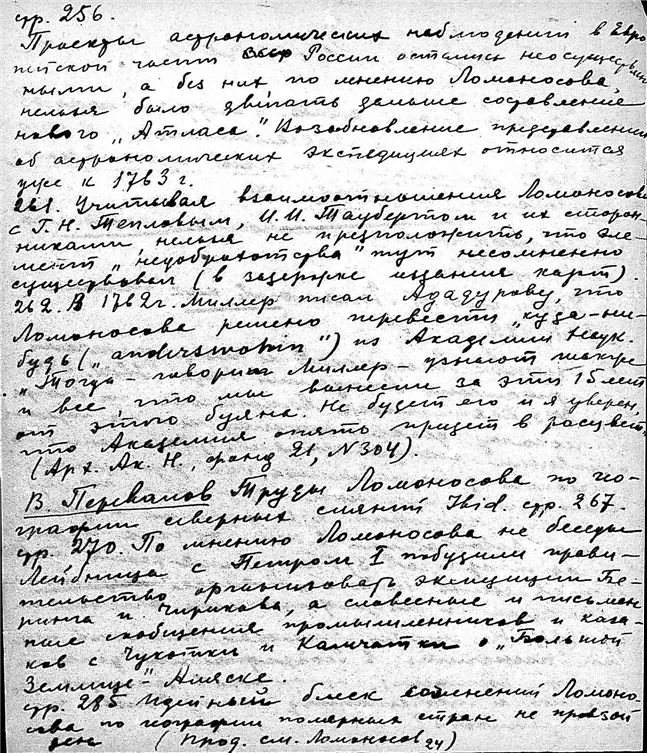 стр. 256.
Проекты астрономических наблюдений в Евро
пейской части России остались неосуществлен
ными, а без них, по мнению Ломоносова,
нельзя было двигать дальше составление
нового „Атласа". Возобновление представлений
об астрономических экспедициях относится
уже к 1763 г.
261. Учитывая взаимоотношения Ломоносова
с Г. Н. Тепловым, И. И. Таубертом и их сторон-
никами, нельзя не предположить, что эле-
мент „недоброхотства" тут несомненно
существовал (в задержке издания карт).
262. В 1762 г. Миллер писал Ададурову, что
Ломоносова решено перевести „куда-ни-
будь („anderswohin") из Академии Наук.
„Тогда – говорит Миллер – узнают также
и все, что мы вынесли за эти 15 лет
от этого буяна. Не будет его и я уверен,
что Академия опять придет в расцвет
(Арх. Ак. Н., фонд 21, N 304).
В. Перевалов Труды Ломоносова по гео-
графии северных сияний Ibid. стр. 267.
стр. 270. По мнению Ломоносова не беседы
Лейбница с Петром I побудили прави-
тельство организовать экспедиции Бе-
ринга и Чирикова, а словесные и письмен
ные сообщения промышленников и каза-
ков с Чукотки и Камчатки о „Большой
Землице" – Аляске.
стр. 285 Идейный блеск сочинений Ломоно-
сова по географии полярных стран не превзой
ден (прод. см. Ломоносов 24)